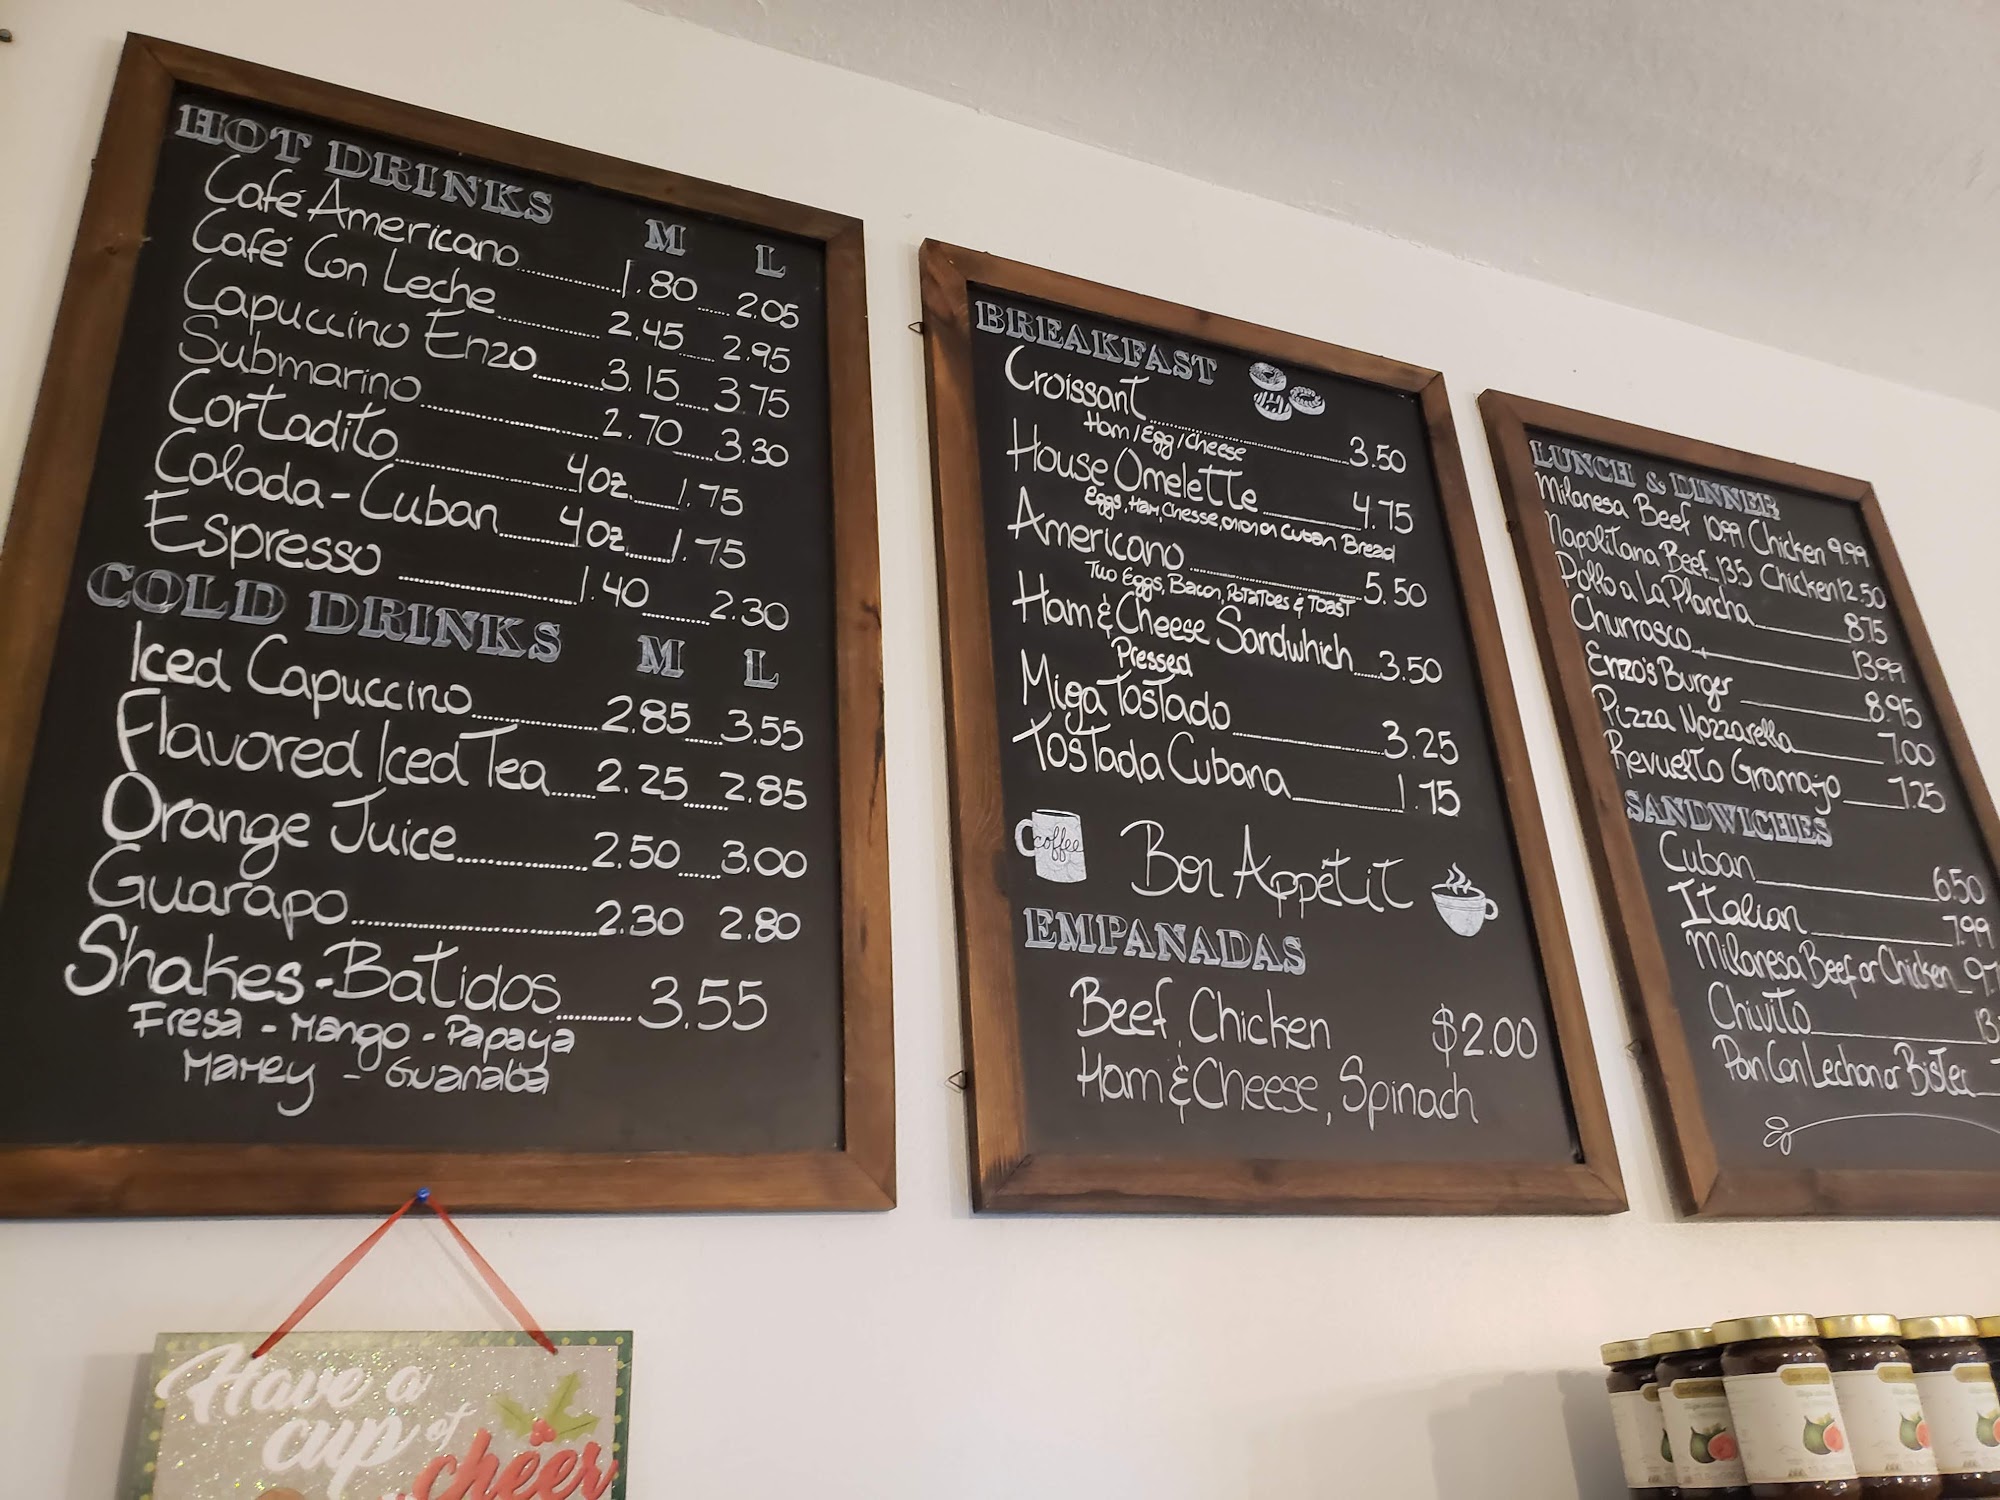 HOT DRINKS M L
Café Americano 1.80 2.05
Café Con Leche 2.45 2.95
Capuccino Enzo 3.15 3.75
Submarino 2.70 3.30
Cortadito 4oz. 1.75
Colada-Cuban 4oz. 1.75
Espresso 1.40 2.30
COLD DRINKS M L
Iced Capuccino 2.85 3.55
Flavored Iced Tea 2.25 2.85
Orange Juice 2.50 3.00
Guarapo 2.30 2.80
Shakes-Batidos 3.55
Fresa - Mango - Papaya
Mamey - Guanaba
BREAKFAST
Croissant 3.50
Ham/Egg/Cheese
House Omelette 4.75
Eggs, Ham, Chesse, onion on Cuban Bread
Americano 5.50
Two Eggs, Bacon, Potatoes & Toast
Ham & Cheese Sandwhich 3.50
Pressed
Miga Tostado 3.25
Tostada Cubana 1.75
coffee
Bon Appétit
EMPANADAS
Beef, Chicken $2.00
Ham & Cheese, Spinach
LUNCH & DINNER
Milanesa Beef 10.99 Chicken 9.99
Napolitana Beef 13.5 Chicken 12.50
Pollo a La Plancha 8.75
Churrasco 13.99
Enzo's Burger 8.95
Pizza Mozzarella 7.00
Revuelto Gramajo 7.25
SANDWICHES
Cuban 6.50
Italian 7.99
Milanesa Beef or Chicken
Chivito
Pan Con Lechon or Bistec
Have a
cup of
cheer